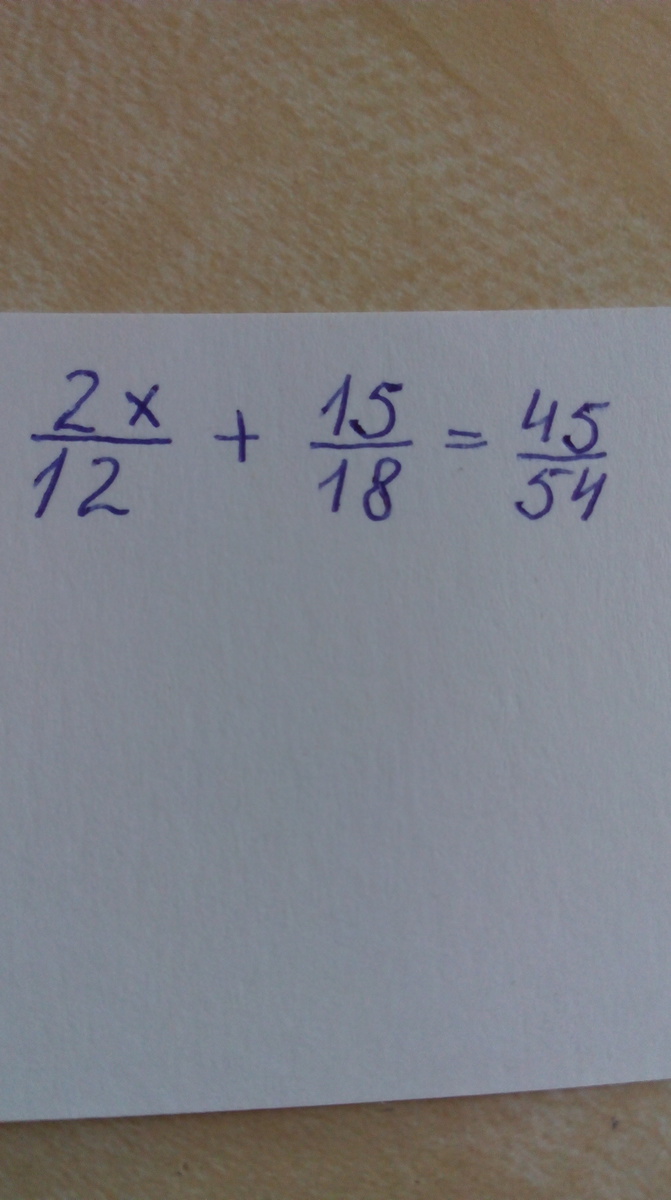 2x/12 + 15/18 = 45/54